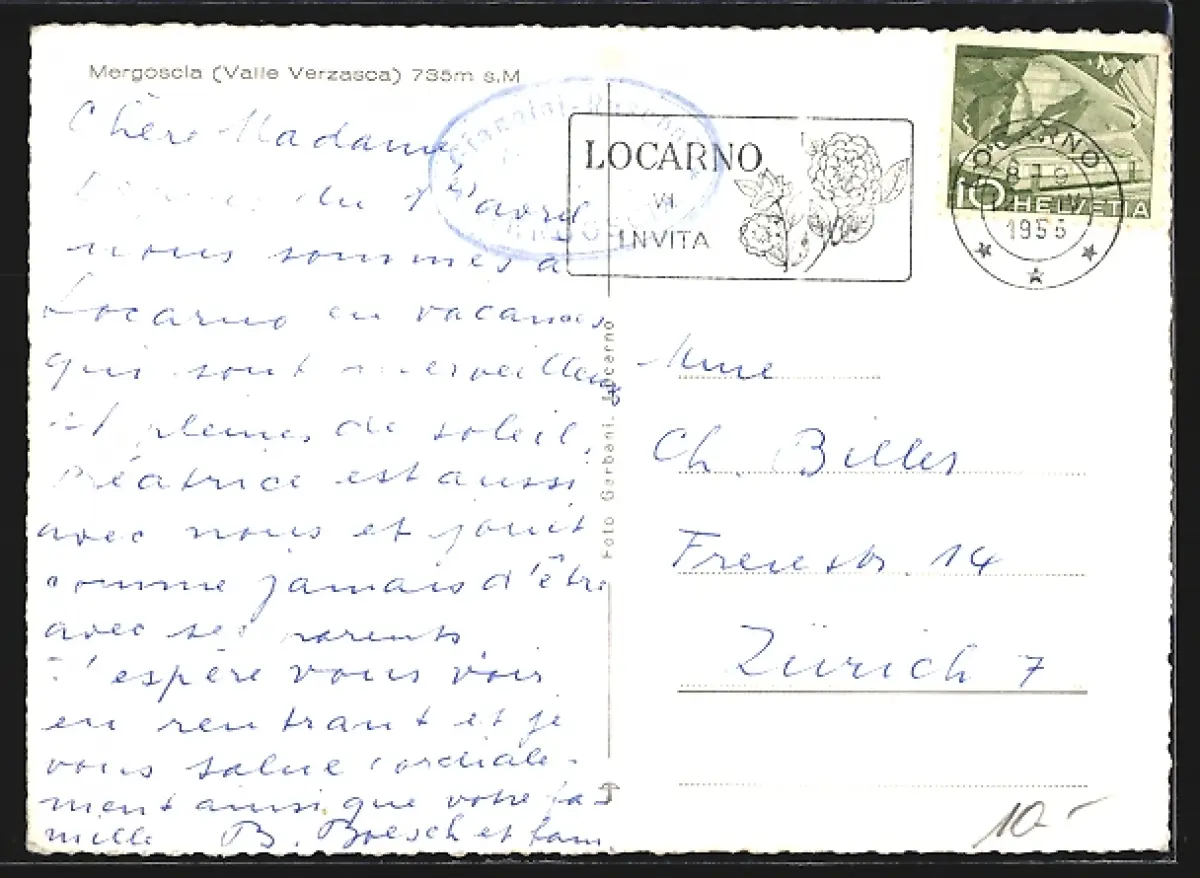 Mergoscia (Valle Verzasca) 735m s.M
Chère Madame,
du 1er avril
nous sommes à
Locarno en vacances
qui sont merveilleuses
et pleines de soleil.
Béatrice est aussi
avec nous et jouit
comme jamais d'être
avec ses parents
J'espère vous voir
en rentrant et je
vous salue cordiale-
ment ainsi que votre fa-
mille B. Boesch et fam.
Foto Garbani, Locarno
LOCARNO
VI
INVITA
10 HELVETIA
LOCARNO
1
1955
Mme
Ch. Biller
Freiestr. 14
Zürich 7
10.-